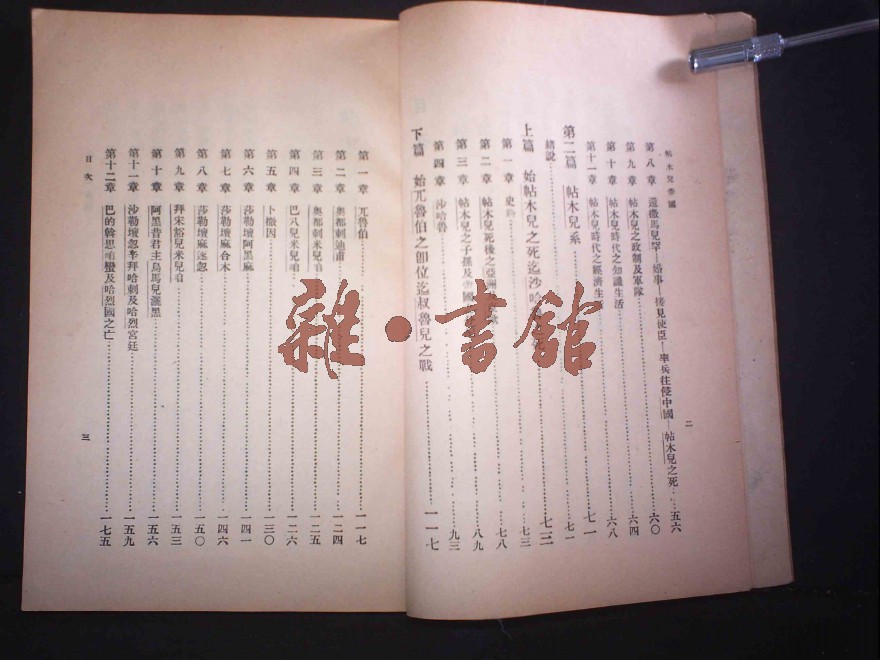 帖木兒帝國
二
第八章 還撒馬兒罕—婚事—接見使臣—率兵往侵中國—帖木兒之死……五六
第九章 帖木兒之政制及軍隊……六〇
第十章 帖木兒時代之知識生活……六四
第十一章 帖木兒時代之經濟生活……六八
第二篇 帖木兒系……七一
緒說……七一
上篇 始帖木兒之死迄沙哈……七三
第一章 史……七三
第二章 帖木兒死後之亞洲……七八
第三章 帖木兒之子孫及帝國……八九
第四章 沙哈魯……九三
下篇 始兀魯伯之卽位迄叔魯兒之戰……一一七
第一章 兀魯伯……一一七
第二章 奧都剌迪甫……一二四
第三章 奧都剌米兒咱……一二五
第四章 巴八兒米兒咱……一二六
第五章 卜撒因……一三〇
第六章 莎勒壇阿黑麻……一四一
第七章 莎勒壇麻合木……一四六
第八章 莎勒壇麻速忽……一五〇
第九章 拜宋豁兒米兒咱……一五三
第十章 阿黑昔君主烏馬兒灑黑……一五六
第十一章 沙勒壇忽辛拜哈剌及哈烈宮廷……一五九
第十二章 巴的斡思咱蠻及哈烈國之亡……一七五
目次
三
雜·書館